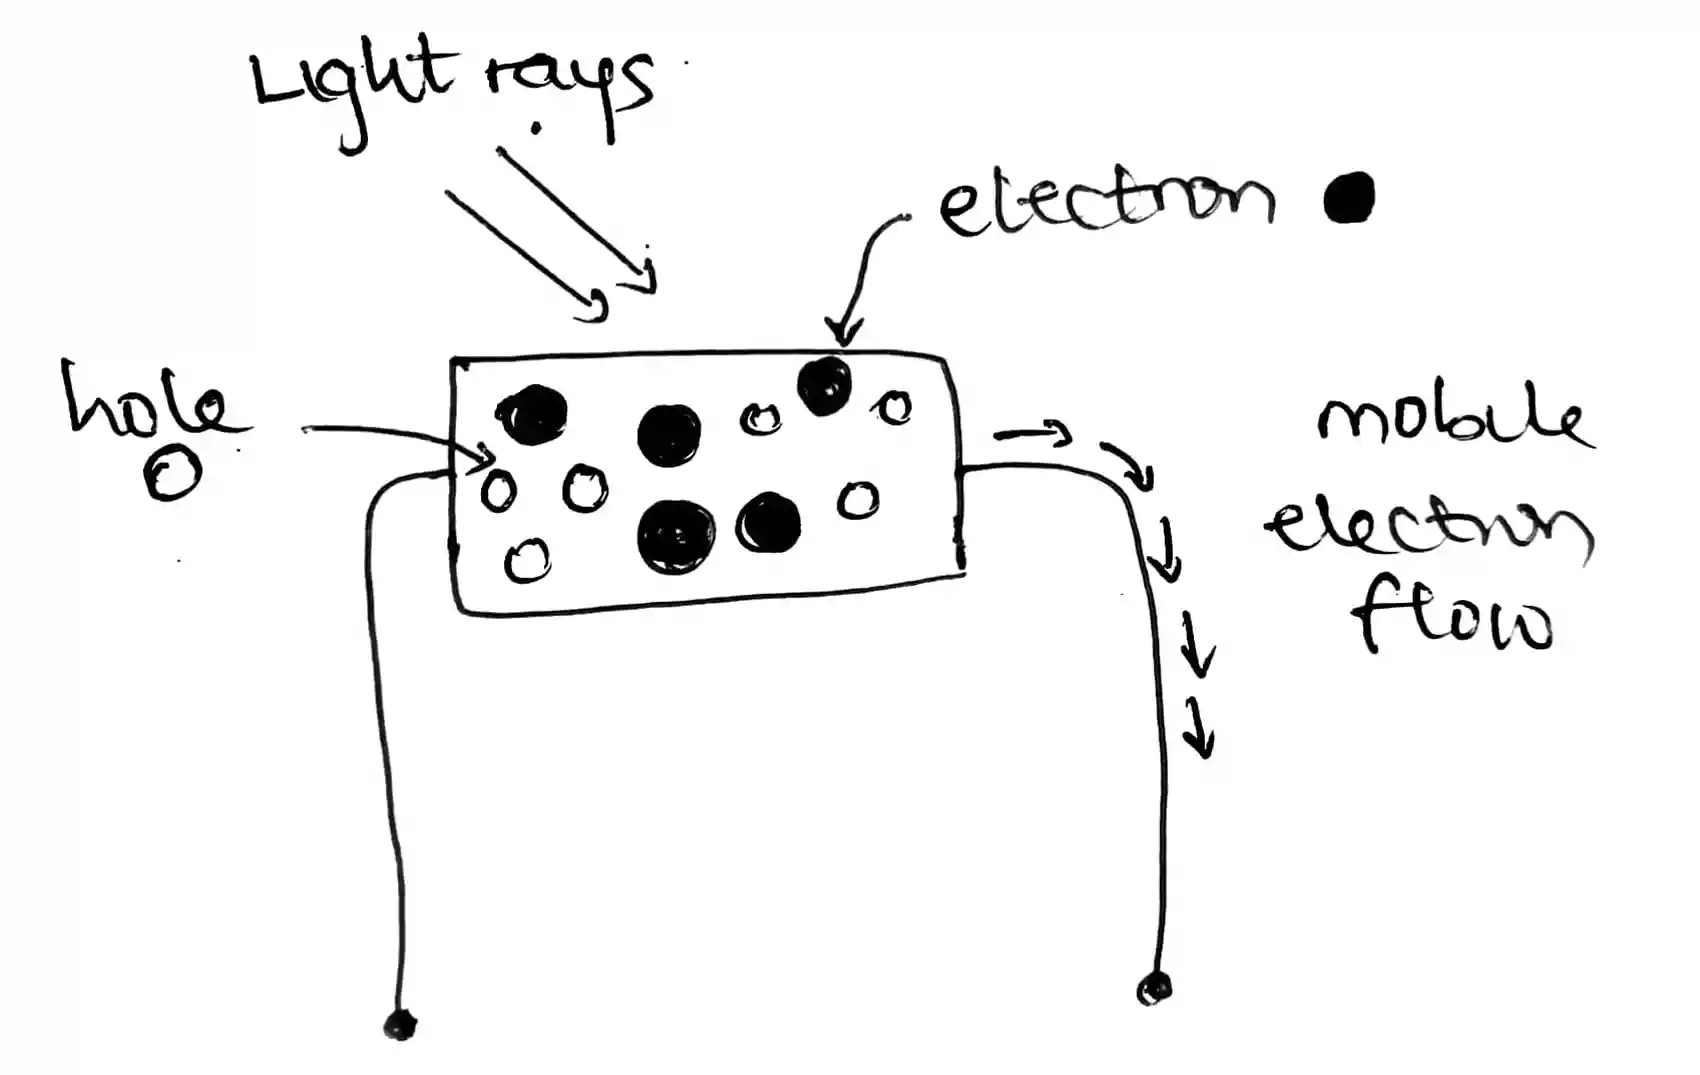 Light rays
electron
hole
mobile
electron
flow